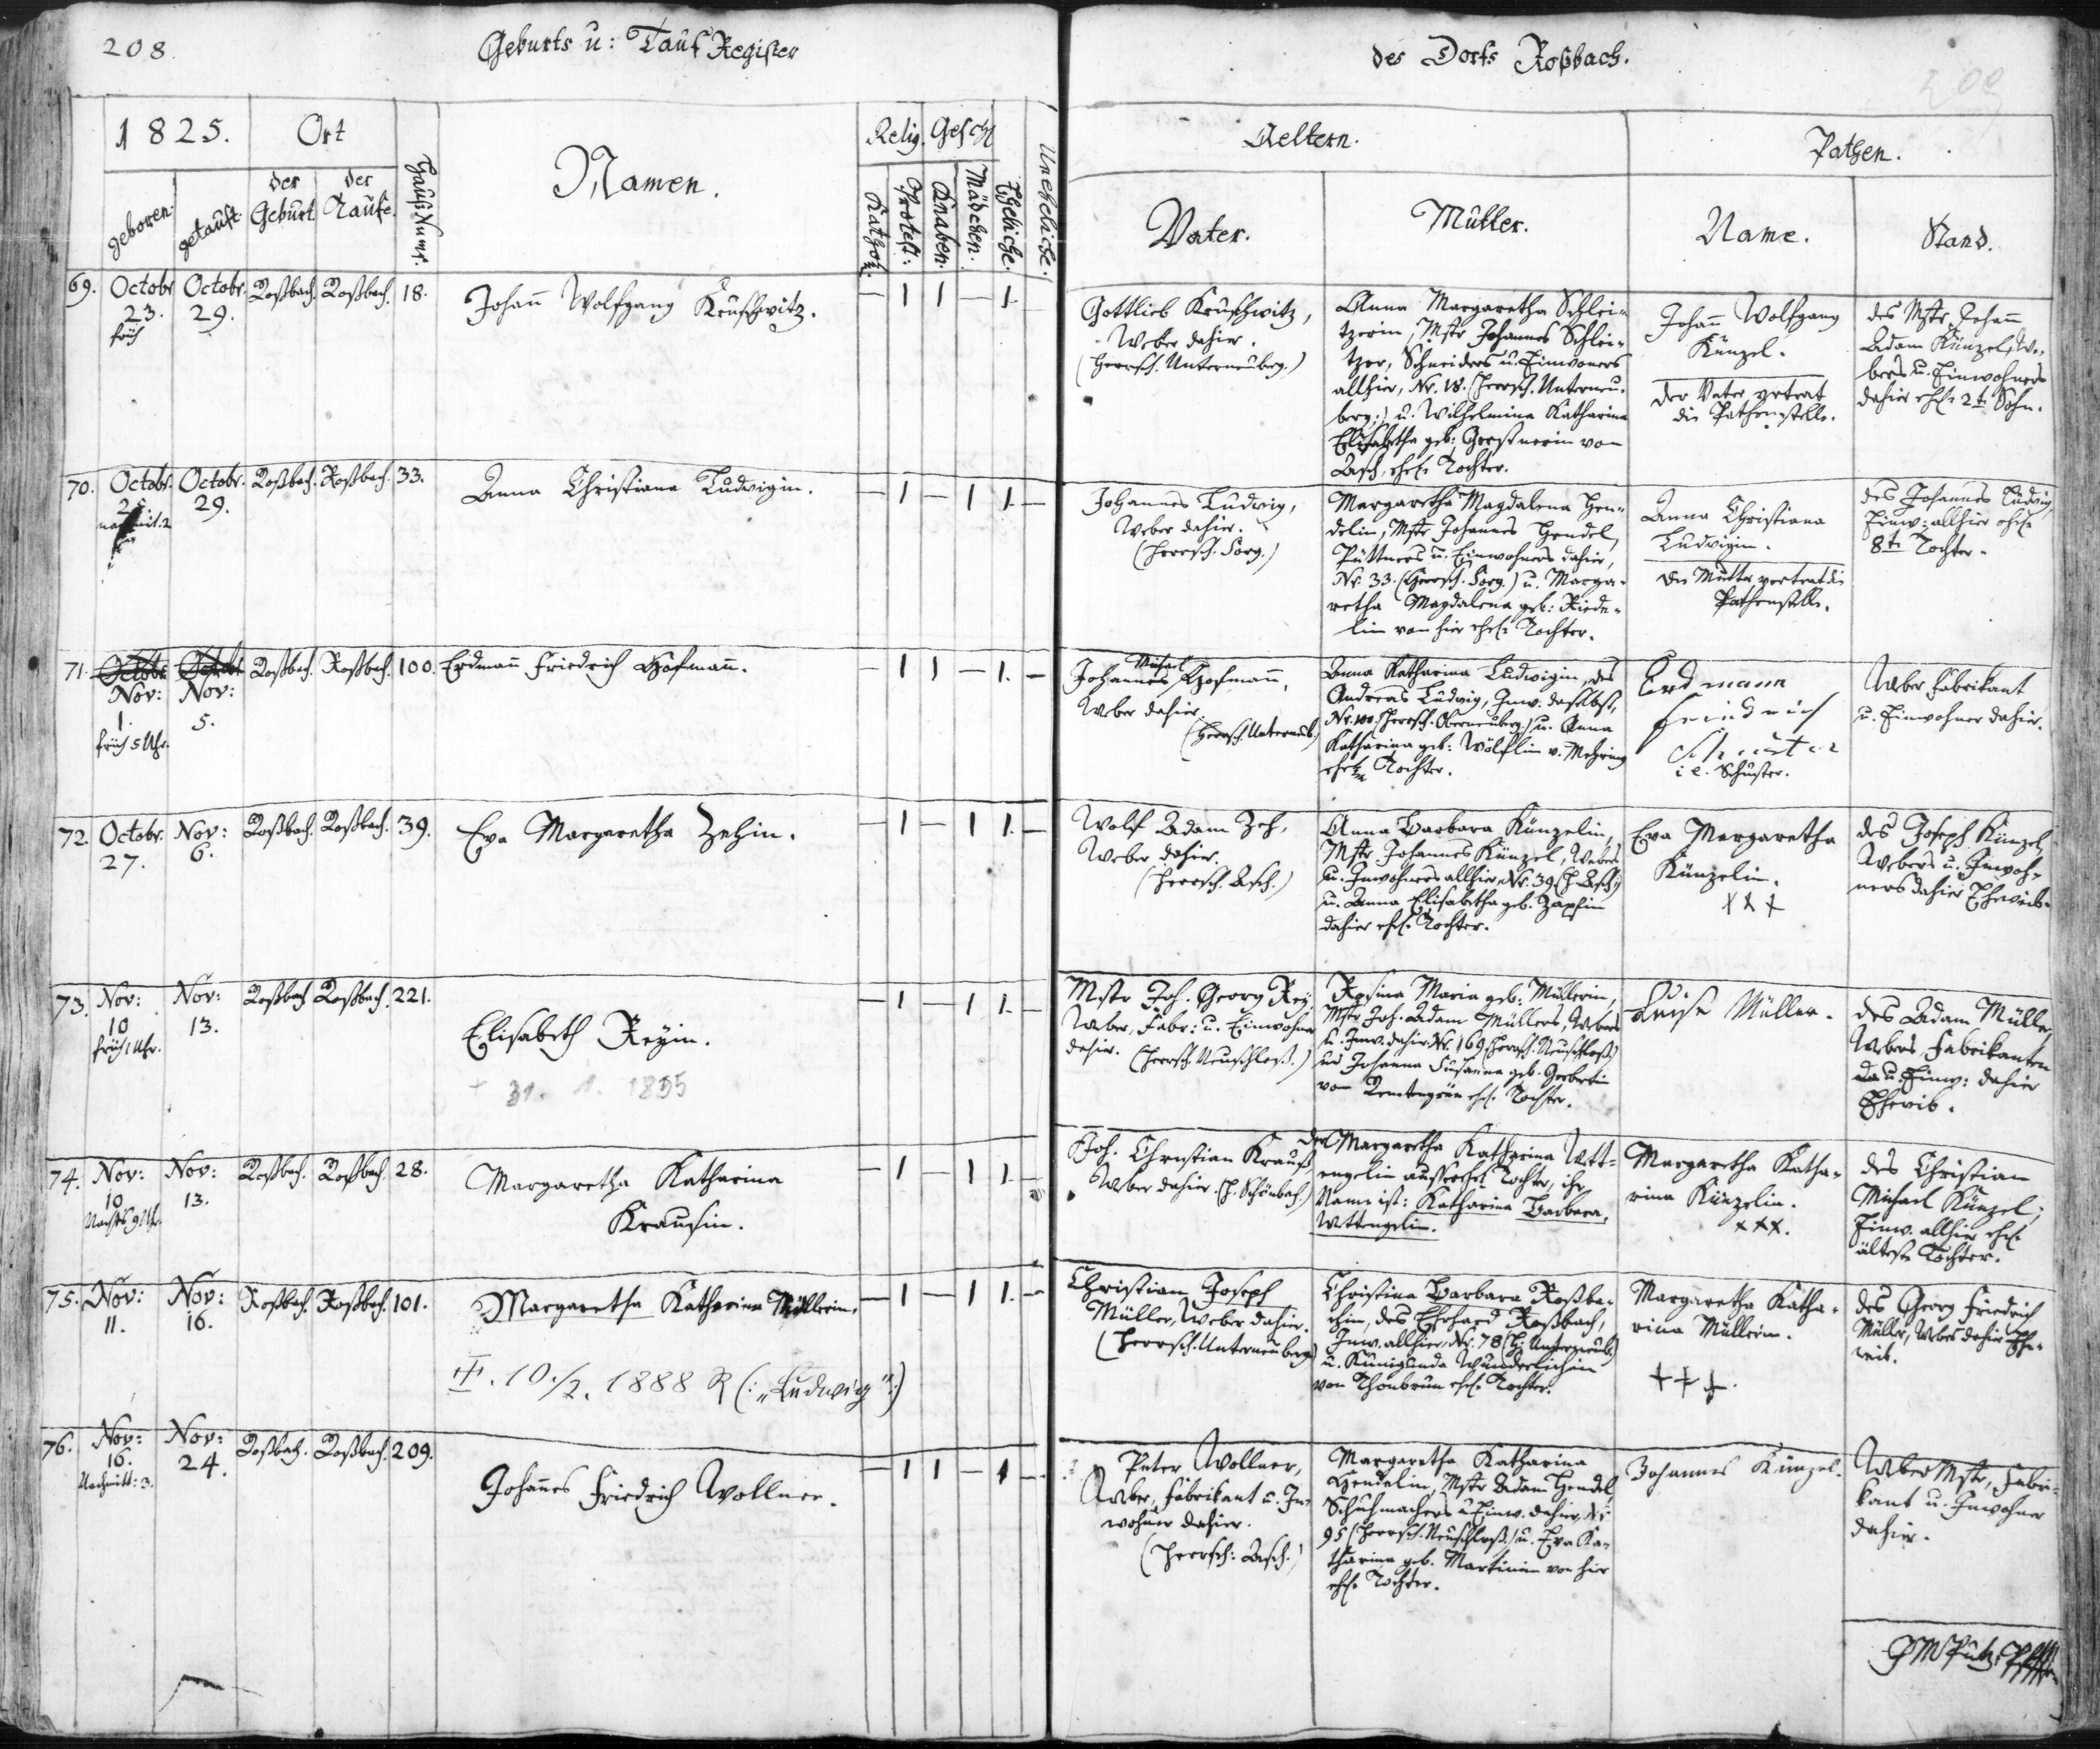 208.
Geburts u: Tauf Register
des Dorfs Roßbach.
209
1825.
Ort
Hauß Numr.
Namen.
Relig.
Geschl
Uneheliche.
geboren:
getauft:
der Geburt.
der Taufe.
Kathol:
Protest:
Knaben.
Mädchen.
Eheliche.
Aeltern.
Pathen.
Vater.
Mutter.
Name.
Stand.
69. Octobr Octobr. Roßbach. Roßbach. 18. Johann Wolfgang Kruschwitz. — 1 1 — 1.
23. 29.
früh
Gottlieb Kruschwitz,
Weber dahier.
(Herrsch. Unterneuberg.)
Anna Margaretha Schlei-
tzerin, Mstr Johannes Schlei-
tzer, Schneiders u. Einwoners
allhier, Nr. 18. (Herrsch. Unterneu-
berg.) u. Wilhelmina Katharina
Elisabetha geb: Geaßnerin von
Asch, ehel. Tochter.
Johann Wolfgang
Künzel.
der Vater vertrat
die Pathenstelle.
des Mstr Johann
Adam Künzel, We-
bers u. Einwohners
dahier ehel. 2t. Sohn.
70. Octobr. Octobr. Roßbach. Roßbach. 33. Anna Christiana Ludwigin. — 1 — 1 1. —
25. 29.
Johannes Ludwig,
Weber dahier.
(Herrsch. Sorg.)
Margaretha Magdalena Hen-
delin, Mstr Johannes Hendel,
Püttners u. Einwohners dahier,
Nr. 33. (Herrsch. Sorg.) u. Marga-
retha Magdalena geb: Riede-
lin von hier ehel. Tochter.
Anna Christiana
Ludwigin.
die Mutter vertrat die
Pathenstelle.
des Johannes Ludwig,
Einw: allhier ehel.
8t. Tochter.
71. Octobr. Octobr. Roßbach. Roßbach. 100. Erdmann Friedrich Hofmann. — 1 1 — 1. —
Nov: Nov:
1. 5.
früh 5 Uhr.
Michael
Johannes Hofmann,
Weber dahier.
(Herrsch. Unterneub.)
Anna Katharina Ludwigin, des
Andreas Ludwig, Inw: daselbst,
Nr. 100. (Herrsch. Oberneuberg.) u. Anna
Katharina geb: Wölflin v. Mehring
ehel. Tochter.
Erdmann
Freidrich
Schuster
i.e. Schuster.
Weber Fabrikant
u. Einwohner dahier.
72. Octobr. Nov: Roßbach. Roßbach. 39. Eva Margaretha Zehin. — 1 — 1 1. —
27. 6.
Wolf Adam Zeh,
Weber dahier.
(Herrsch. Asch.)
Anna Barbara Künzelin,
Mstr Johannes Künzel, Webers
u. Inwohners allhier, Nr. 39 (H. Asch)
u. Anna Elisabetha geb. Zapfin
dahier ehel. Tochter.
Eva Margaretha
Künzelin.
x x x
des Joseph Künzel,
Webers u. Inwoh-
ners dahier Eheweib.
73. Nov: Nov: Roßbach Roßbach. 221. — 1 — 1 1. —
10 13. Elisabeth Reyin.
früh 1 Uhr.
+ 31. 1. 1895
Mstr Joh. Georg Rey,
Weber, Fabr: u. Einwohner
dahier. (Herrsch. Neuschloß.)
Rosina Maria geb: Müllerin,
Mstr Joh. Adam Müllers, Webers
u. Inw. dahier Nr. 169 (Herrsch. Neuschloß)
und Johanna Susanna geb. Gerbertin
von Remtengrün ehel. Tochter.
Luise Müller.
des Adam Müller,
Webers, Fabrikanten
da u. Einw: dahier
Eheweib.
74. Nov: Nov: Roßbach. Roßbach 28. Margaretha Katharina — 1 — 1 1. —
10 13. Krausin.
Nachts 9 Uhr.
Joh. Christian Krauß,
Weber dahier. (H. Schönbach.)
der Margaretha Katharina Wett-
engelin außerehel. Tochter, ihr
Name ist: Katharina Barbara,
Wettengelin.
Margaretha Katha-
rina Künzelin.
xxx.
des Christian
Michael Künzel,
Einw. allhier ehel.
älteste Tochter.
75. Nov: Nov: Roßbach. Roßbach. 101. Margaretha Katharina Müllerin. — 1 — 1 1. —
11. 16.
10./2. 1888 R (: „Ludwig“ :)
Christian Joseph
Müller, Weber dahier.
(Herrsch. Unterneuberg)
Christina Barbara Roßba-
chin, des Erhard Roßbach,
Inw. allhier, Nr. 78 (H: Unterneub.)
u. Kunigunda Wunderlichin
von Thonbrun ehel. Tochter.
Margaretha Katha-
rina Müllerin.
+ + +.
des Georg Friedrich
Müller, Weber dahier Ehe-
weib.
76. Nov: Nov: Roßbach. Roßbach. 209. Johannes Friedrich Wollner. — 1 1 — 1 —
16. 24.
Nachmitt: 3.
Peter Wollner,
Weber, Fabrikant u. In-
wohner dahier.
(Herrsch: Asch.)
Margaretha Katharina
Hendelin, Mstr Adam Hendel
Schuhmachers u. Einw. dahier, Nr.
95 (Herrsch. Neuschloß) u. Eva Ka-
tharina geb. Martinin von hier
ehel. Tochter.
Johannes Künzel.
Weber Mstr, Fabri-
kant u. Inwohner
dahier.